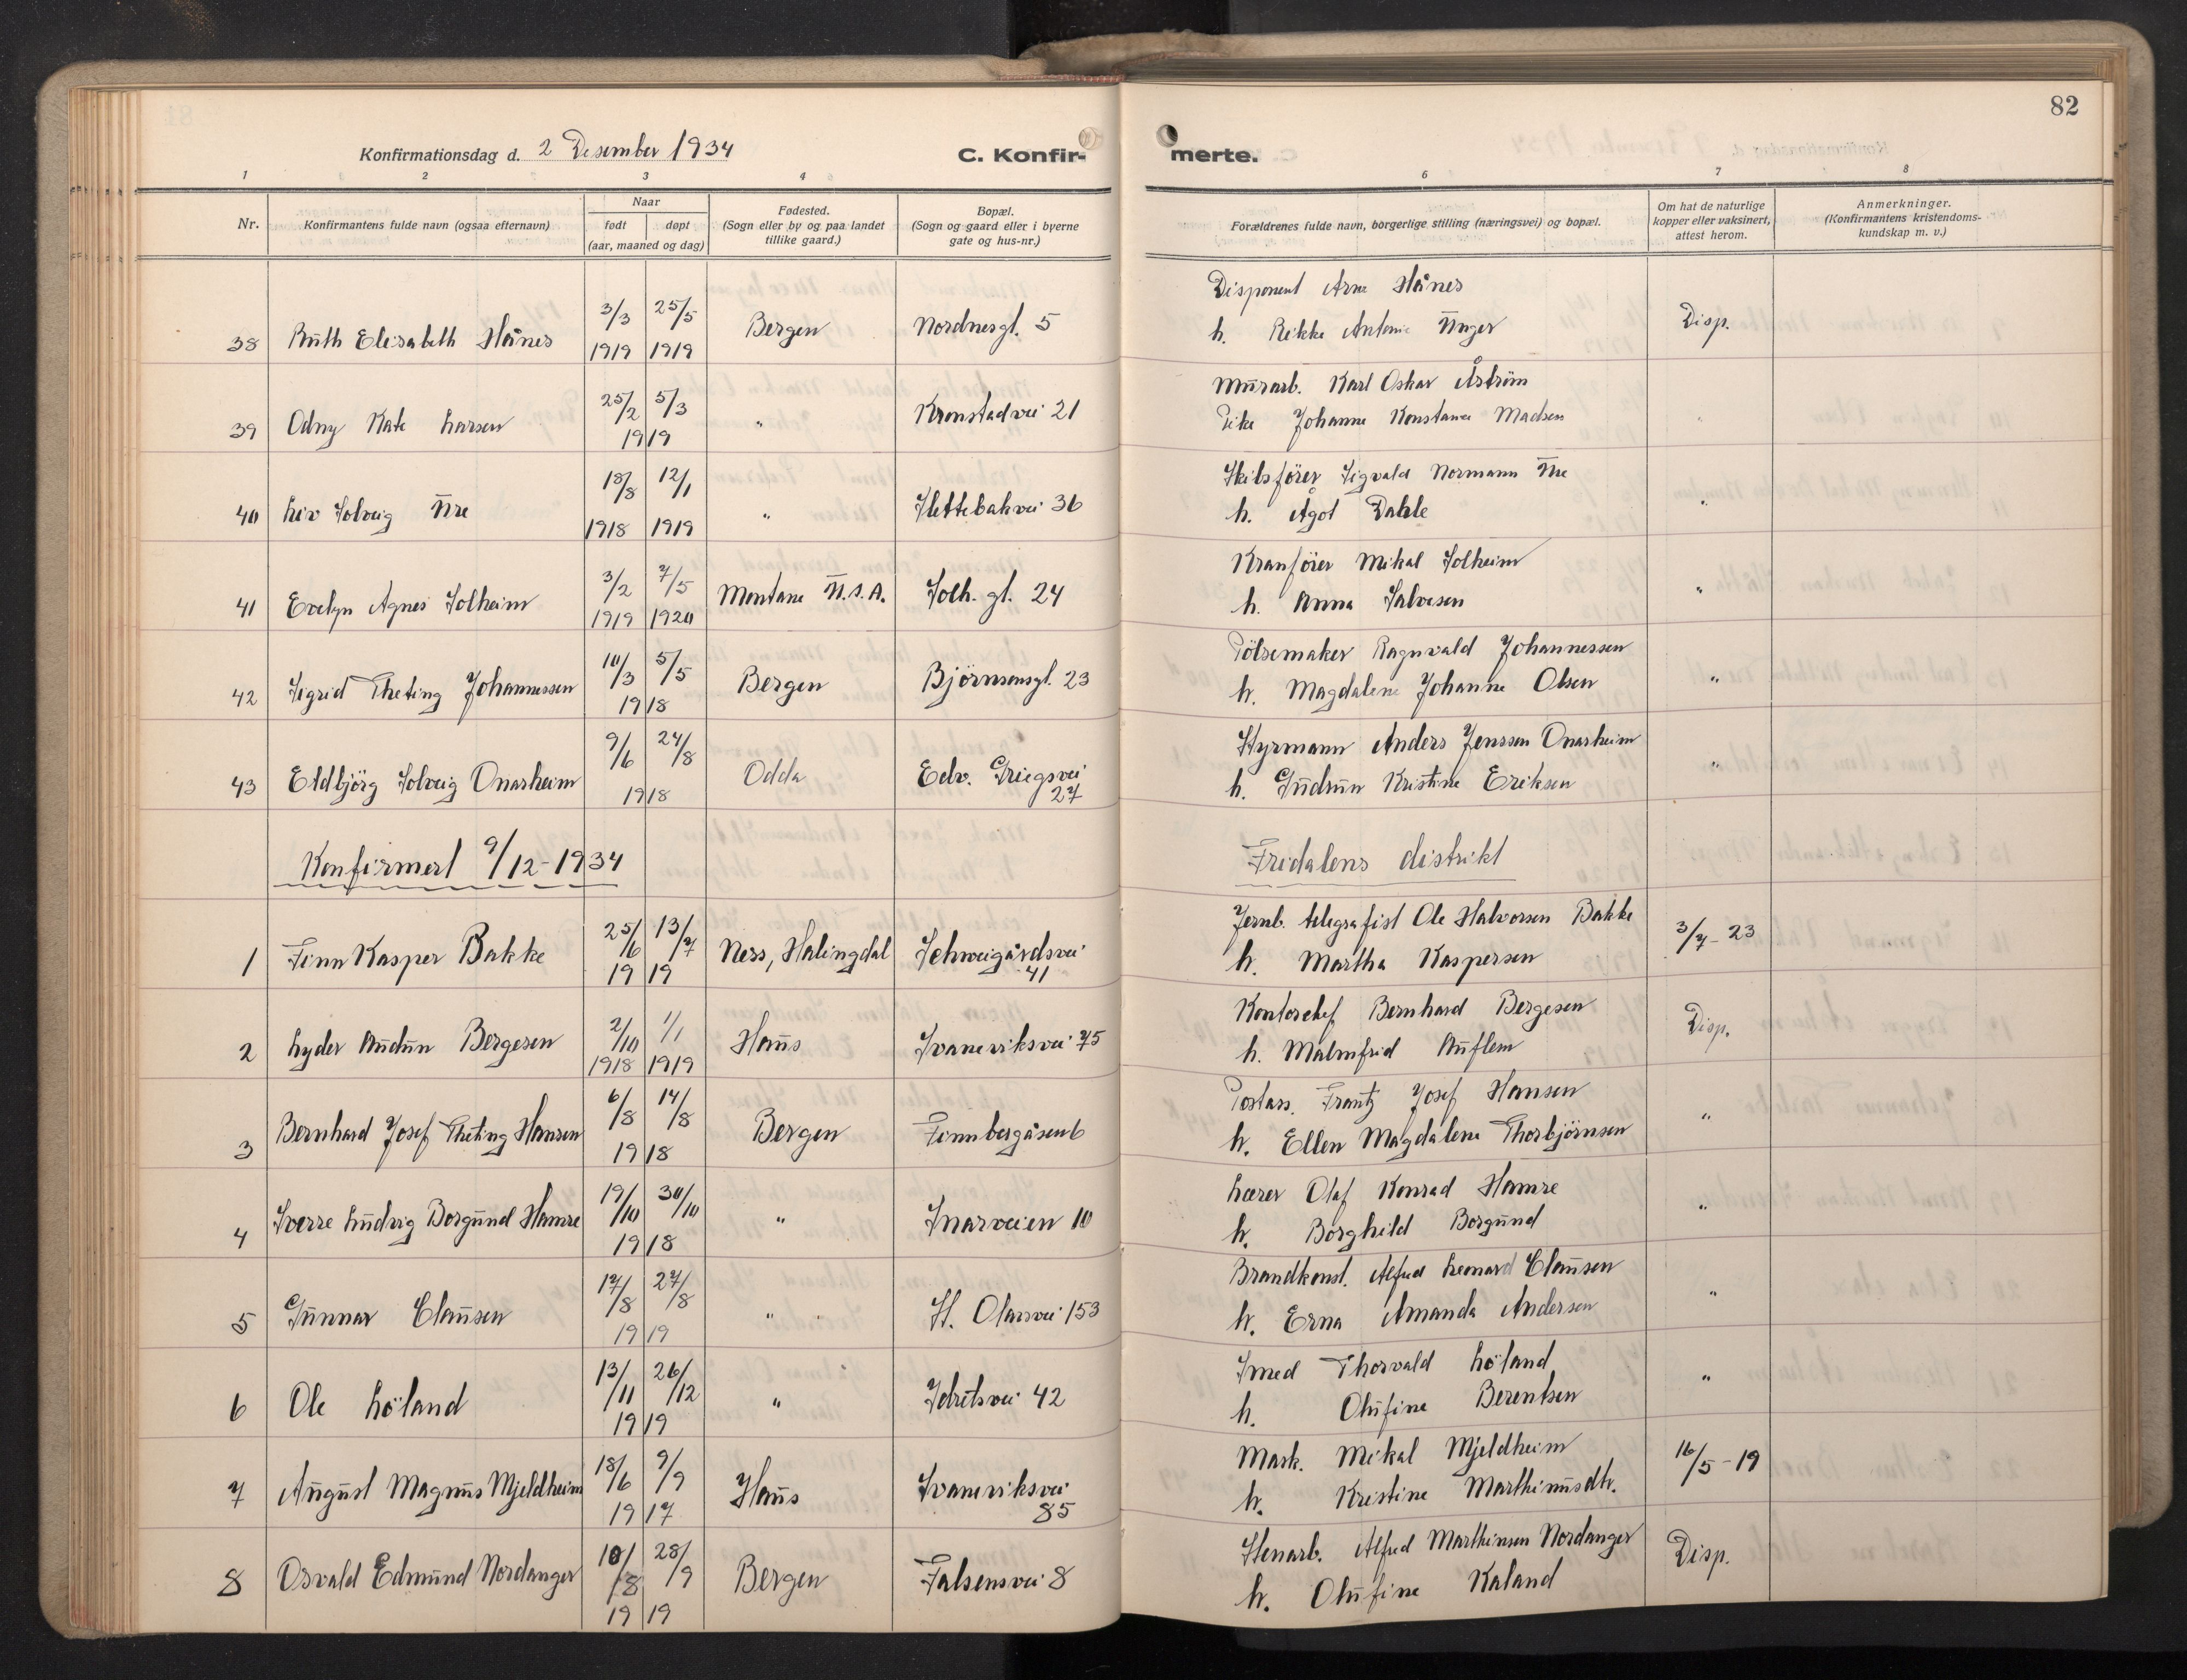 82
Konfirmationsdag d. 2 Desember 1934
C. Konfir-
merte.
1 2 3 4
6 7 8
Nr.
Konfirmantens fulde navn (ogsaa efternavn)
Naar
født døpt
(aar, maaned og dag)
Fødested.
(Sogn eller by og paa landet
tillike gaard.)
Bopæl.
(Sogn og gaard eller i byerne
gate og hus-nr.)
Forældrenes fulde navn, borgerlige stilling (næringsvei) og bopæl.
Om hat de naturlige
kopper eller vaksinert,
attest herom.
Anmerkninger.
(Konfirmantens kristendoms-
kundskap m. v.)
38 Ruth Elisabeth Hånes 3/3 1919 25/5 1919 Bergen Nordnesgt. 5
Disponent Arne Hånes
h. Rikke Antonie Unger
Disp.
39 Odny Kate Larsen 25/2 5/3 1919 " Kronstadvei 21
Murarb. Karl Oskar Åström
Pike Johanne Konstance Madsen
"
40 Liv Solveig Ure 18/8 1918 12/1 1919 " Slettebakvei 36
Skibsförer Sigvald Normann Ure
h. Ågot Dahle
"
41 Evelyn Agnes Solheim 3/2 1919 7/5 1920 Montana U.S.A. Solh. gt. 24
Kranförer Mikal Solheim
h. Anna Salvesen
"
42 Sigrid Theting Johannessen 10/3 5/5 1918 Bergen Björnsonsgt. 23
Pölsemaker Ragnvald Johannessen
h. Magdalene Johanne Olsen
"
43 Eldbjörg Solveig Onarheim 9/6 24/8 1918 Odda Edv. Griegsvei
27
Styrmann Anders Jenssen Onarheim
h. Gudrun Kristine Eriksen
"
Konfirmert 9/12-1934
Fridalens distrikt
1 Finn Kasper Bakke 25/6 13/7 1919 Ness, Halingdal Schweigårdsvei
41
Jernb. telegrafist Ole Halvorsen Bakke
h. Martha Kaspersen
3/7-23
2 Lyder Audun Bergesen 2/10 1918 1/1 1919 Haus Svaneviksvei 75
Kontorchef Bernhard Bergesen
h. Malmfrid Auflem
Disp.
3 Bernhard Josef Theting Hansen 6/8 14/8 1918 Bergen Finnbergåsen 6
Postass. Frantz Josef Hansen
h. Ellen Magdalene Thorbjörnsen
"
4 Sverre Ludvig Borgund Hamre 19/10 30/10 1918 " Snarveien 10
Lærer Olaf Konrad Hamre
h. Borghild Borgund
"
5 Gunnar Clausen 17/8 27/8 1919 " " St. Olavsvei 153
Brandkonst. Alfred Leonard Clausen
h. Erna Amanda Andersen
"
6 Ole Löland 13/11 26/12 1919 " Idretsvei 42
Smed Thorvald Löland
h. Olufine Berentsen
"
7 August Magnus Mjeldheim 18/6 9/9 1917 Haus Svaneviksvei
85
Mask. Mikal Mjeldheim
h. Kristine Marthinusdtr.
16/5-19
8 Osvald Edmund Nordanger 10/8 28/9 1919 Bergen Falsensvei 8
Stenarb. Alfred Marthinsen Nordanger
h. Olufine Kaland
Disp.